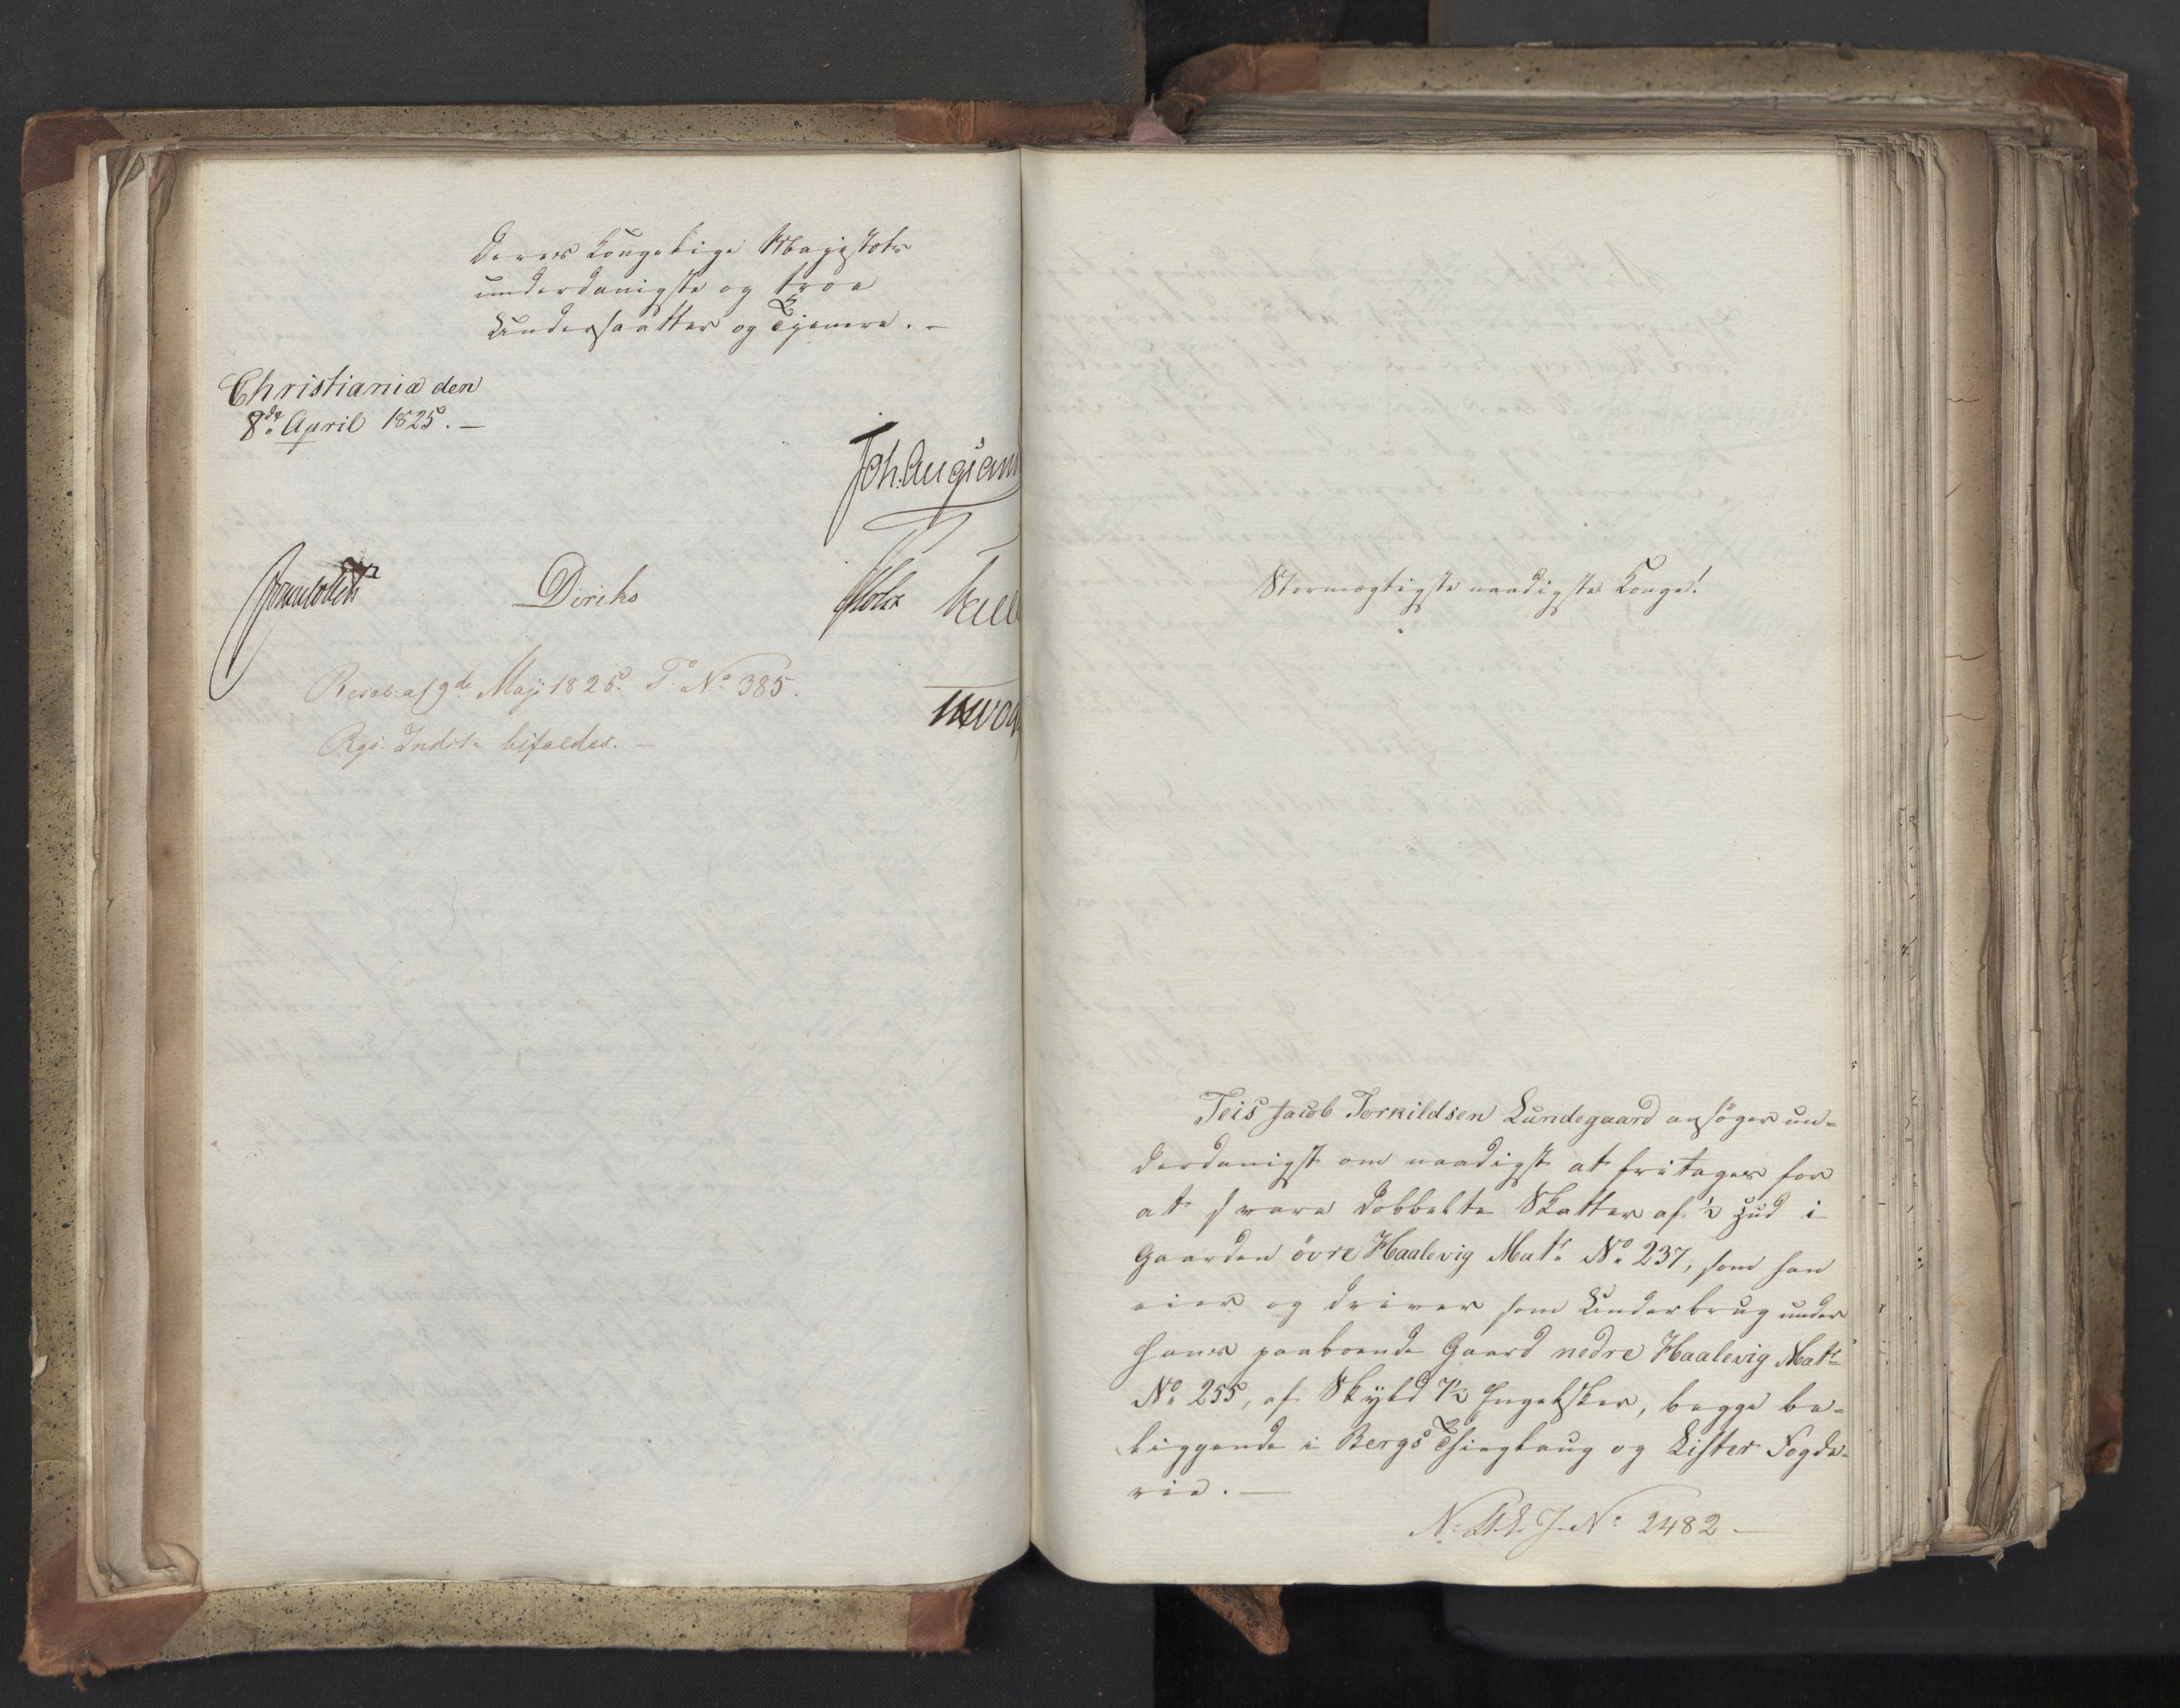 Deres Kongelige Majestæts
underdanigste og troe
Undersaatter og Tjenere. -
Christiania den
8de April 1825. -
Joh. Aug. Sand
Diriks
Holst
Resol. af 9de Maji 1825. P. No 385.
Rgs. Indst. bifaldes. -
Stormægtigste naadigste Konge!
Teis Jacob Torkildsen Lundegaard ansöger un-
derdanigst om naadigst at fritages for
at svare dobbelte Skatter af ½ Hud i
Gaarden övre Haalevig Matr. No. 237, som han
eier og driver som Underbrug under
hans paaboende Gaard nedre Haalevig Matr.
No. 255, af Skyld 7½ Engelsker, begge be-
liggende i Bergs Thinglaug og Lister Fogde-
rie. -
J. No. 2482 -